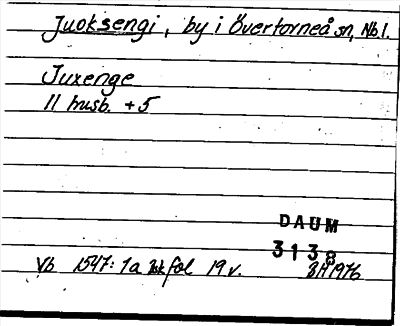 Juoksengi, by i Övertorneå sn, Nbl.
Juxenge
11 husb. +5
DAUM
3138
Vb 1547: 1a fol 19 v. 1976